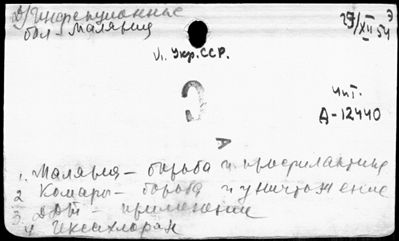 2) Инфекционные
бол- Малярия
27/XII 54 Э
V. Укр.ССР.
Э
чит.
Д-12440
А
1. Малярия - борьба и профилактика
2 Комары - борьба и уничтожение
3 ДДТ - применение
4 Гексахлоран